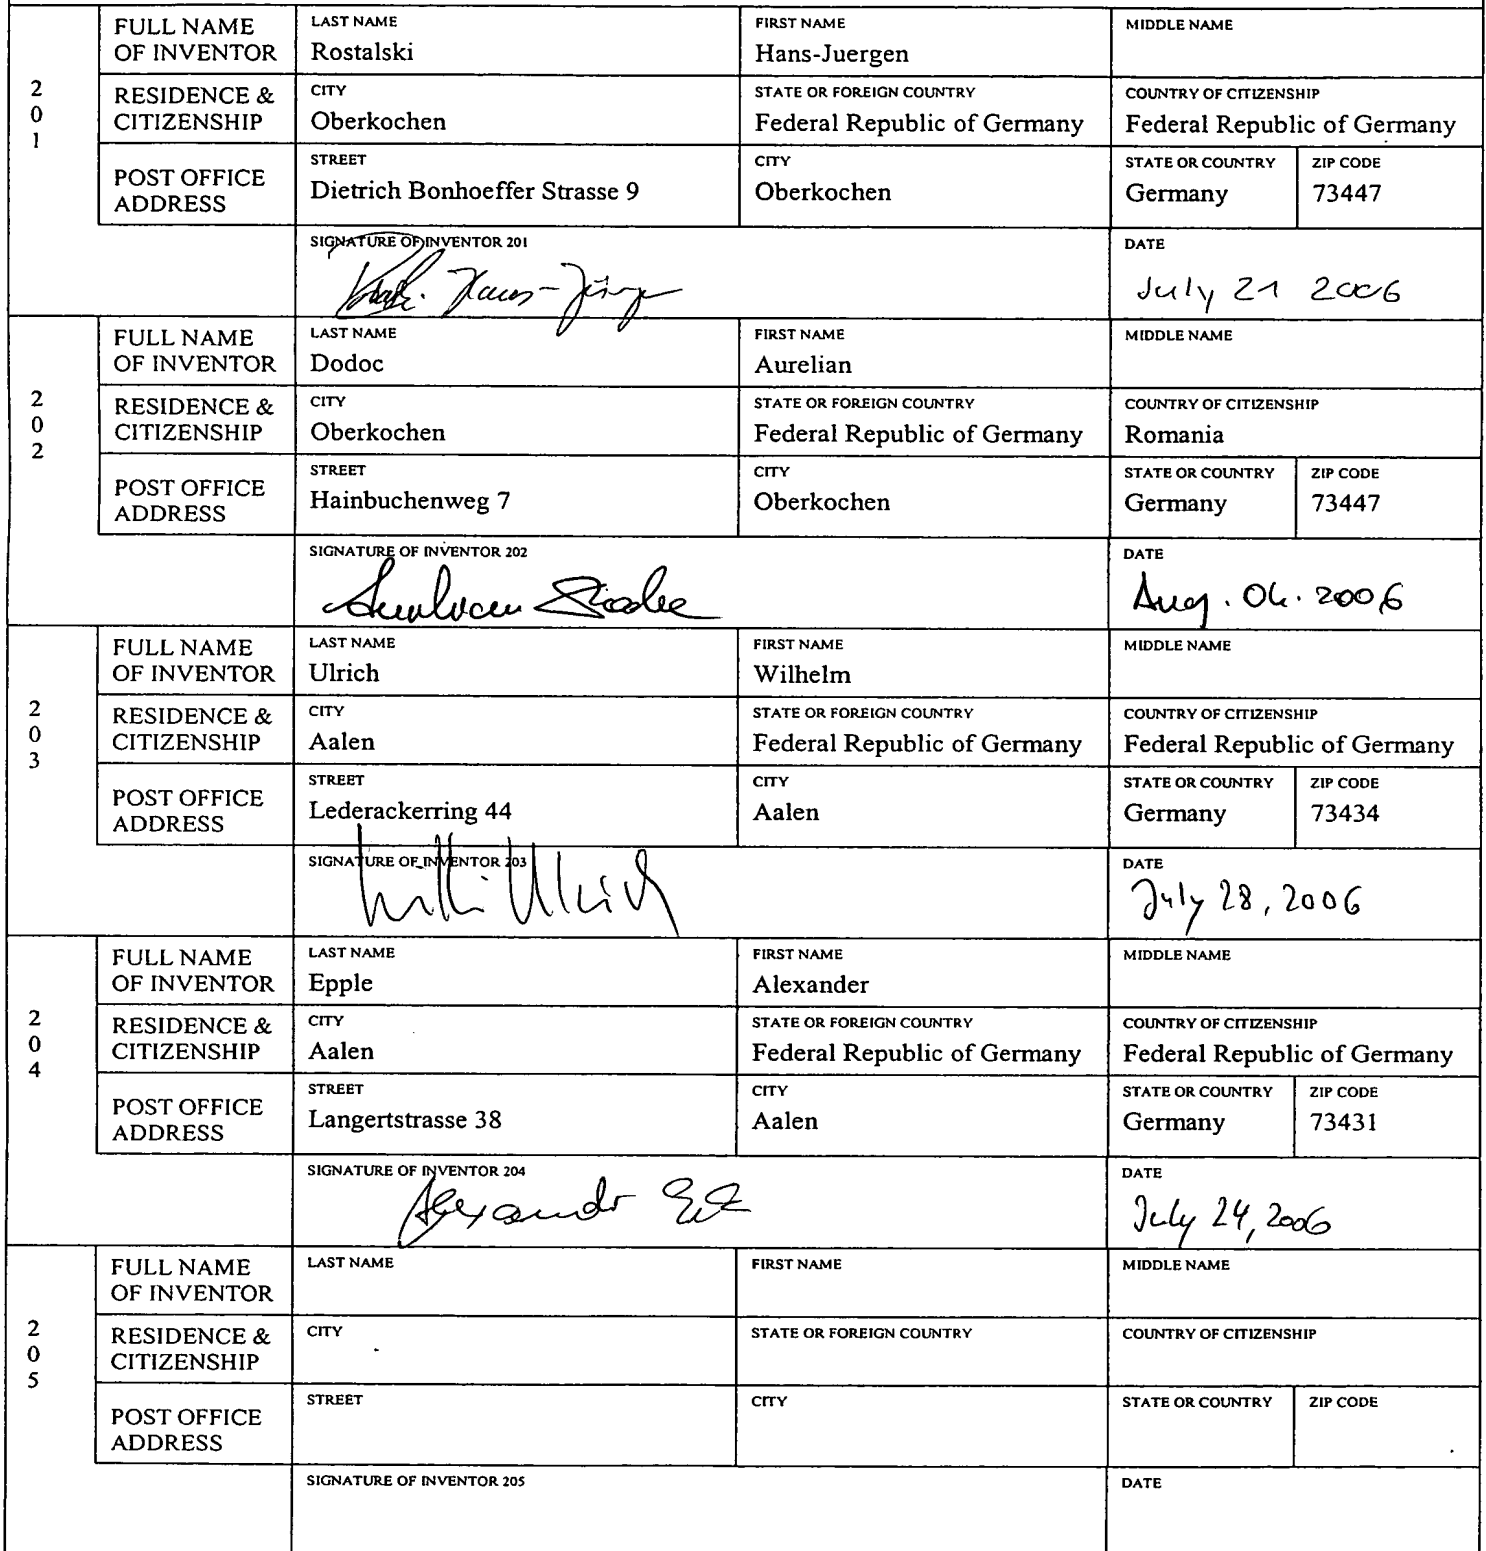 201
FULL NAME OF INVENTOR
LAST NAME
Rostalski
FIRST NAME
Hans-Juergen
MIDDLE NAME
RESIDENCE & CITIZENSHIP
CITY
Oberkochen
STATE OR FOREIGN COUNTRY
Federal Republic of Germany
COUNTRY OF CITIZENSHIP
Federal Republic of Germany
POST OFFICE ADDRESS
STREET
Dietrich Bonhoeffer Strasse 9
CITY
Oberkochen
STATE OR COUNTRY
Germany
ZIP CODE
73447
SIGNATURE OF INVENTOR 201
Hans-Jürgen
DATE
July 21 2006
202
FULL NAME OF INVENTOR
LAST NAME
Dodoc
FIRST NAME
Aurelian
MIDDLE NAME
RESIDENCE & CITIZENSHIP
CITY
Oberkochen
STATE OR FOREIGN COUNTRY
Federal Republic of Germany
COUNTRY OF CITIZENSHIP
Romania
POST OFFICE ADDRESS
STREET
Hainbuchenweg 7
CITY
Oberkochen
STATE OR COUNTRY
Germany
ZIP CODE
73447
SIGNATURE OF INVENTOR 202
DATE
Aug. 04. 2006
203
FULL NAME OF INVENTOR
LAST NAME
Ulrich
FIRST NAME
Wilhelm
MIDDLE NAME
RESIDENCE & CITIZENSHIP
CITY
Aalen
STATE OR FOREIGN COUNTRY
Federal Republic of Germany
COUNTRY OF CITIZENSHIP
Federal Republic of Germany
POST OFFICE ADDRESS
STREET
Lederackerring 44
CITY
Aalen
STATE OR COUNTRY
Germany
ZIP CODE
73434
SIGNATURE OF INVENTOR 203
Willi Ulrich
DATE
July 28, 2006
204
FULL NAME OF INVENTOR
LAST NAME
Epple
FIRST NAME
Alexander
MIDDLE NAME
RESIDENCE & CITIZENSHIP
CITY
Aalen
STATE OR FOREIGN COUNTRY
Federal Republic of Germany
COUNTRY OF CITIZENSHIP
Federal Republic of Germany
POST OFFICE ADDRESS
STREET
Langertstrasse 38
CITY
Aalen
STATE OR COUNTRY
Germany
ZIP CODE
73431
SIGNATURE OF INVENTOR 204
DATE
July 24, 2006
205
FULL NAME OF INVENTOR
LAST NAME
FIRST NAME
MIDDLE NAME
RESIDENCE & CITIZENSHIP
CITY
STATE OR FOREIGN COUNTRY
COUNTRY OF CITIZENSHIP
POST OFFICE ADDRESS
STREET
CITY
STATE OR COUNTRY
ZIP CODE
SIGNATURE OF INVENTOR 205
DATE